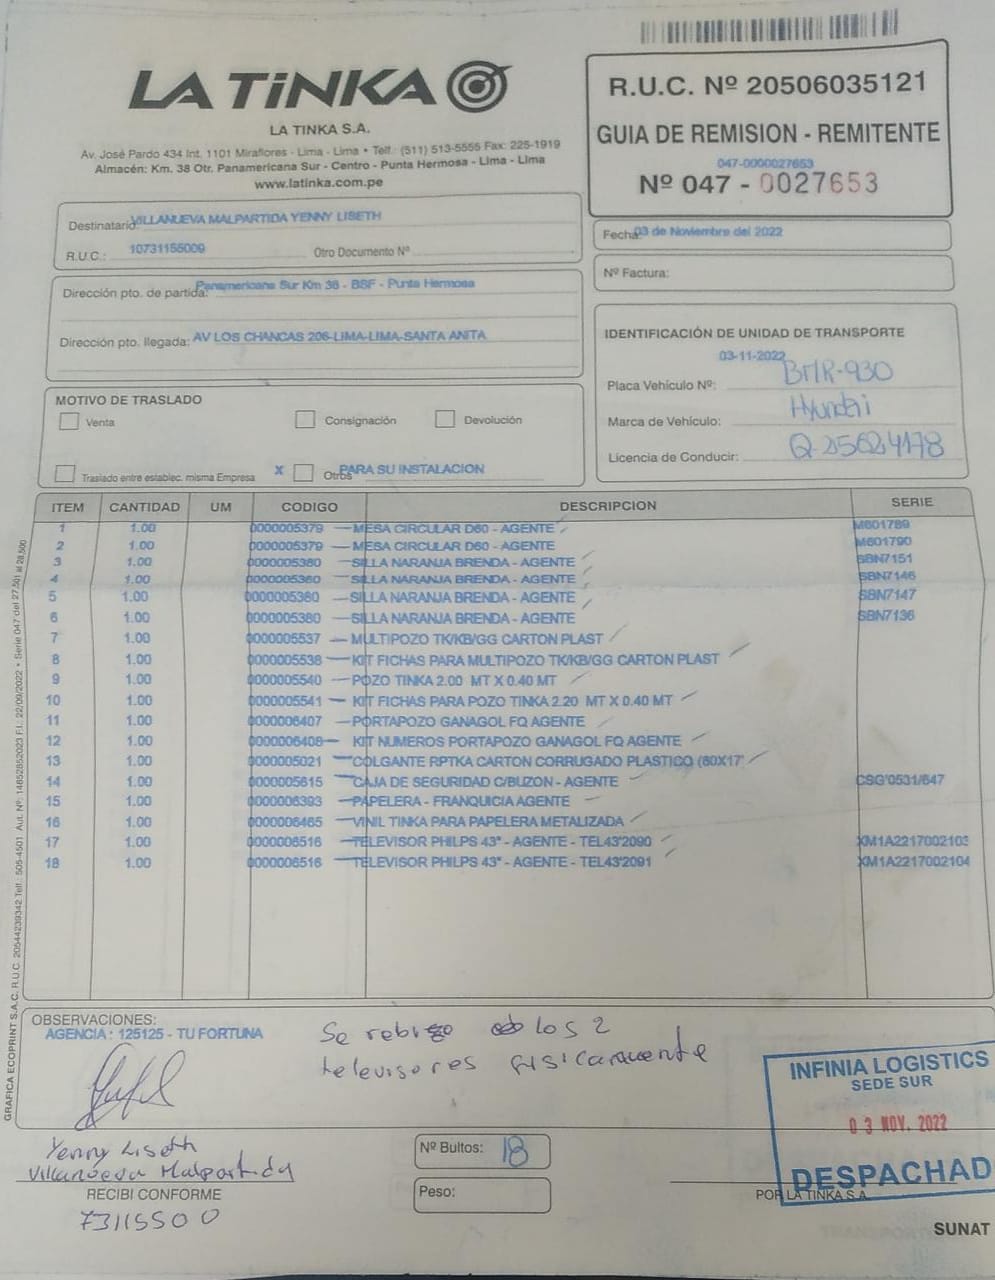 LA TiNKA
LA TINKA S.A.
Av. José Pardo 434 Int. 1101 Miraflores - Lima - Lima • Telf.: (511) 513-5555 Fax: 225-1919
Almacén: Km. 38 Otr. Panamericana Sur - Centro - Punta Hermosa - Lima - Lima
www.latinka.com.pe
R.U.C. Nº 20506035121
GUIA DE REMISION - REMITENTE
047-0000027653
Nº 047 - 0027653
Destinatario: VILLANUEVA MALPARTIDA YENNY LISETH
R.U.C.: 10731155009 Otro Documento Nº
Fecha: 03 de Noviembre del 2022
Nº Factura:
Dirección pto. de partida: Panamericana Sur Km 38 - BSF - Punta Hermosa
Dirección pto. llegada: AV LOS CHANCAS 206-LIMA-LIMA-SANTA ANITA
IDENTIFICACIÓN DE UNIDAD DE TRANSPORTE
03-11-2022
Placa Vehículo Nº: BMR-930
Marca de Vehículo: Hyundai
Licencia de Conducir: Q-25624178
MOTIVO DE TRASLADO
Venta Consignación Devolución
Traslado entre establec. misma Empresa X Otros PARA SU INSTALACION
ITEM CANTIDAD UM CODIGO DESCRIPCION SERIE
1 1.00 0000005379 MESA CIRCULAR D60 - AGENTE M601789
2 1.00 0000005379 MESA CIRCULAR D60 - AGENTE M601790
3 1.00 0000005380 SILLA NARANJA BRENDA - AGENTE SBN7151
4 1.00 0000005380 SILLA NARANJA BRENDA - AGENTE SBN7146
5 1.00 0000005380 SILLA NARANJA BRENDA - AGENTE SBN7147
6 1.00 0000005380 SILLA NARANJA BRENDA - AGENTE SBN7136
7 1.00 0000005537 MULTIPOZO TK/KB/GG CARTON PLAST
8 1.00 0000005538 KIT FICHAS PARA MULTIPOZO TK/KB/GG CARTON PLAST
9 1.00 0000005540 POZO TINKA 2.00 MT X 0.40 MT
10 1.00 0000005541 KIT FICHAS PARA POZO TINKA 2.20 MT X 0.40 MT
11 1.00 0000006407 PORTAPOZO GANAGOL FQ AGENTE
12 1.00 0000006408 KIT NUMEROS PORTAPOZO GANAGOL FQ AGENTE
13 1.00 0000005021 COLGANTE RPTKA CARTON CORRUGADO PLASTICO (60X17
14 1.00 0000005615 CAJA DE SEGURIDAD C/BUZON - AGENTE CSG'0531/647
15 1.00 0000006393 PAPELERA - FRANQUICIA AGENTE
16 1.00 0000006465 VINIL TINKA PARA PAPELERA METALIZADA
17 1.00 0000006516 TELEVISOR PHILPS 43" - AGENTE - TEL43'2090 XM1A2217002103
18 1.00 0000006516 TELEVISOR PHILPS 43" - AGENTE - TEL43'2091 XM1A2217002104
GRAFICA ECOPRINT S.A.C. R.U.C. 20544239342 Telf.: 505-4501 Aut. Nº: 14652852023 F.I.: 22/09/2022 • Serie 047 del 27,501 al 28,500
OBSERVACIONES:
AGENCIA: 125125 - TU FORTUNA
Se los 2
televisores fisicamente
INFINIA LOGISTICS
SEDE SUR
03 NOV. 2022
DESPACHAD
Yenny Liseth
Villanueva Malpartida
RECIBI CONFORME
73115500
Nº Bultos: 18
Peso:
POR LA TINKA S.A.
SUNAT